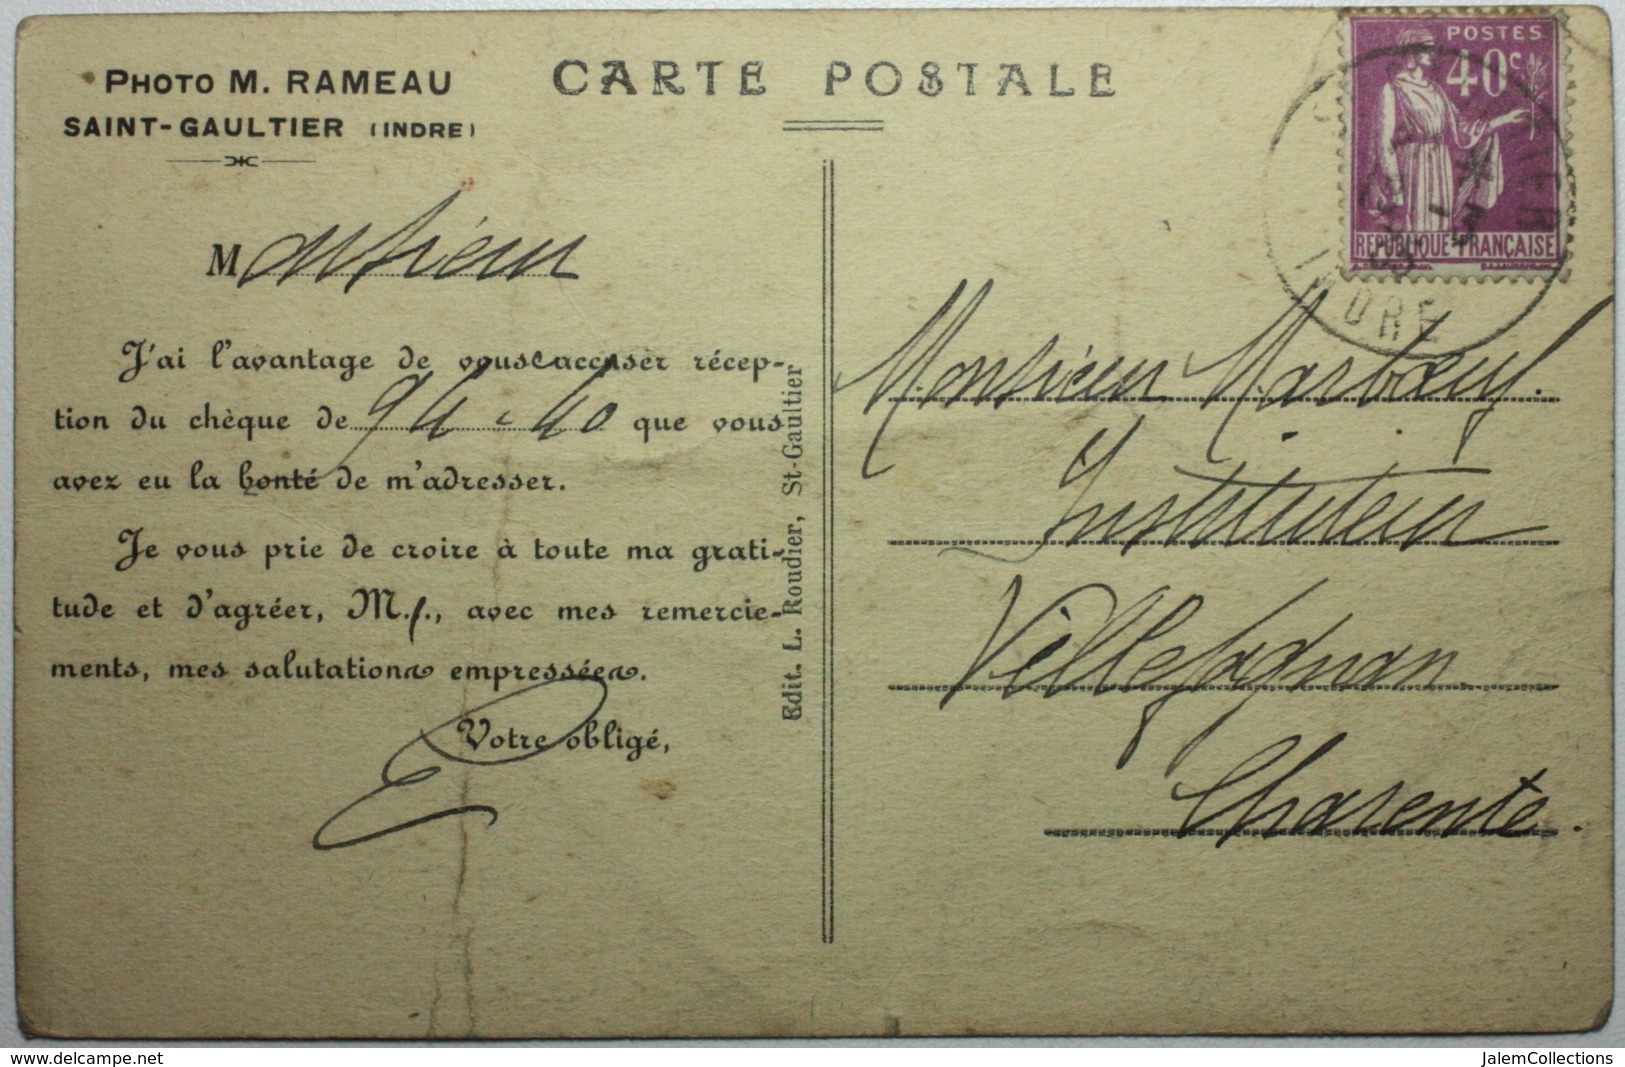 PHOTO M. RAMEAU
SAINT-GAULTIER (INDRE)
CARTE POSTALE
POSTES
40c
REPUBLIQUE FRANÇAISE
INDRE
Monsieur
J'ai l'avantage de vous accuser récep-
tion du chèque de 94-40 que vous
avez eu la bonté de m'adresser.
Je vous prie de croire à toute ma grati-
tude et d'agréer, M., avec mes remercie-
ments, mes salutations empressées.
Votre obligé,
Edit. L. Roudier, St-Gaultier
Monsieur Marbœuf.
Instituteur
Villefagnan
Charente.
delcampe.net
JalemCollections